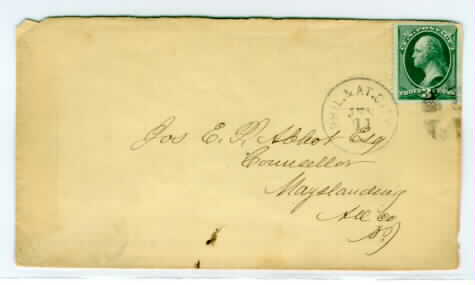 U.S. POSTAGE
THREE CENTS
3
PHIL. & AT. C
11
Jos E. P. Abbot Esq
Counsellor
Mayslanding
Atl Co
N.J